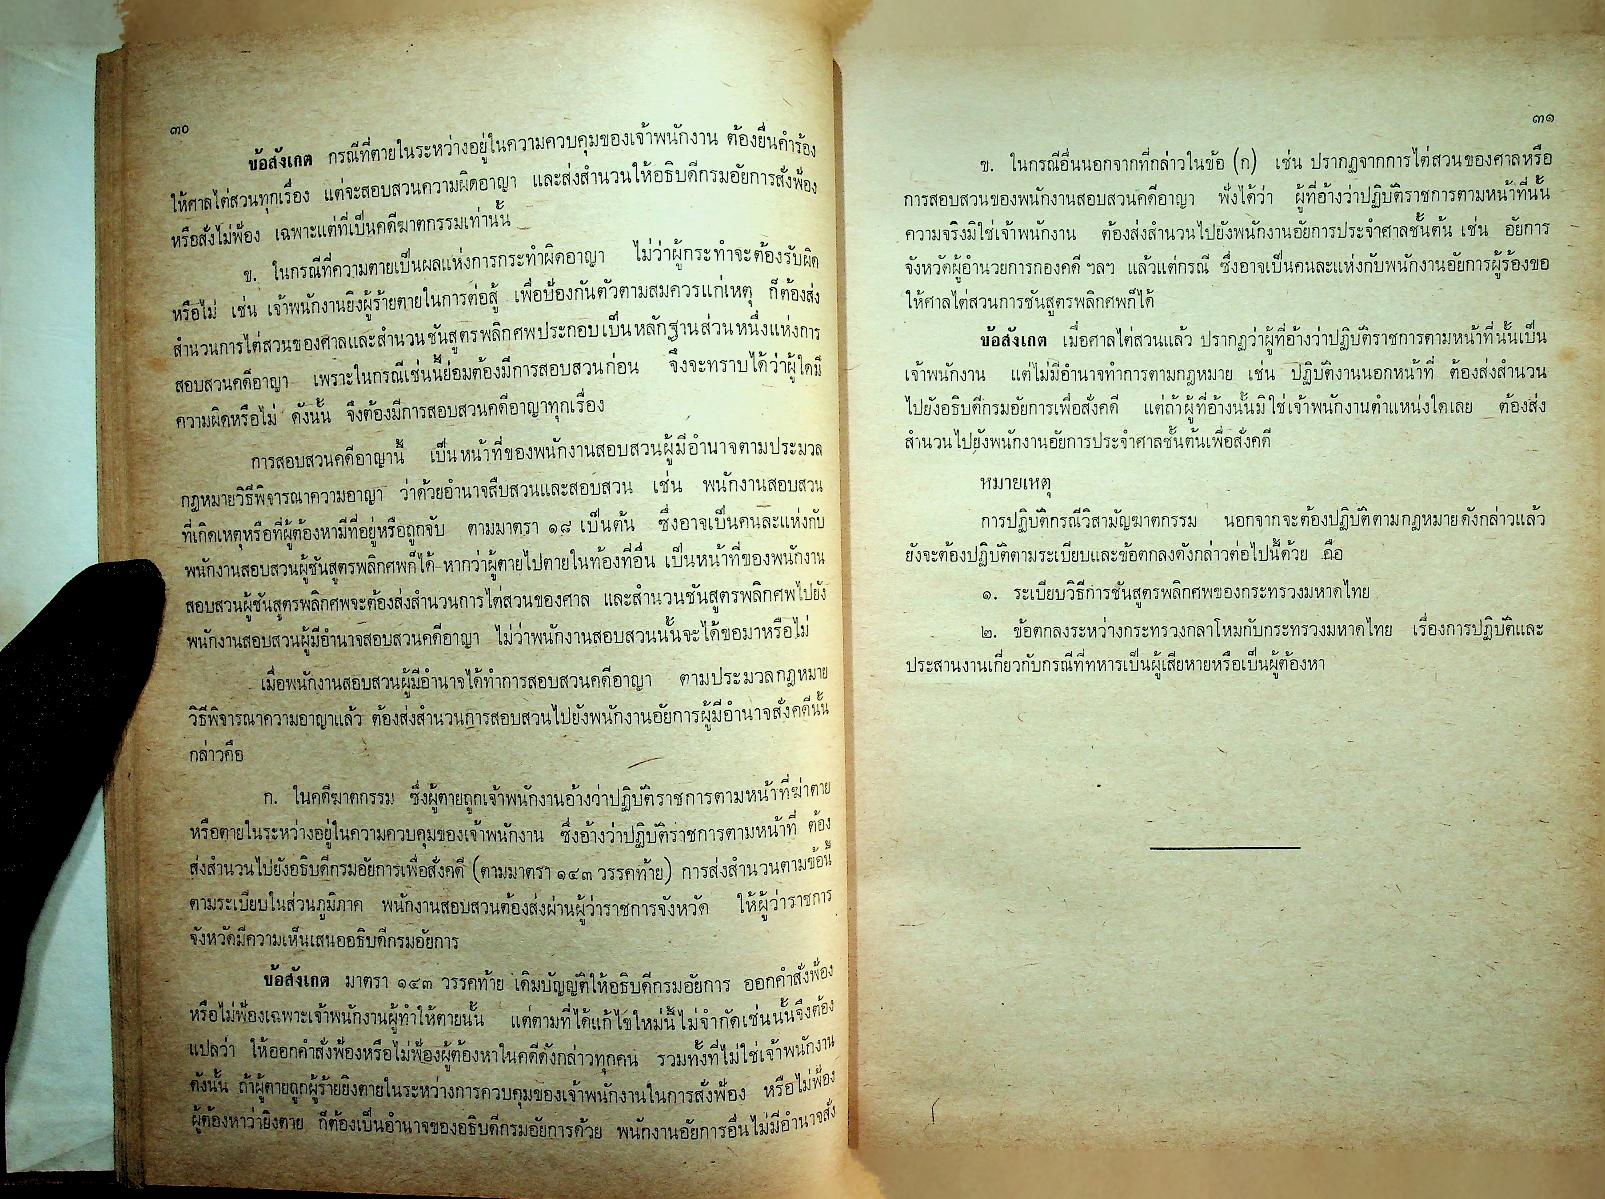 ๓๐
ข้อสังเกต กรณีที่ตายในระหว่างอยู่ในความควบคุมของเจ้าพนักงาน ต้องยื่นคำร้อง
ให้ศาลไต่สวนทุกเรื่อง แต่จะสอบสวนความผิดอาญา และส่งสำนวนให้อธิบดีกรมอัยการสั่งฟ้อง
หรือสั่งไม่ฟ้อง เฉพาะแต่ที่เป็นคดีฆาตกรรมเท่านั้น
ข. ในกรณีที่ความตายเป็นผลแห่งการกระทำผิดอาญา ไม่ว่าผู้กระทำจะต้องรับผิด
หรือไม่ เช่น เจ้าพนักงานยิงผู้ร้ายตายในการต่อสู้ เพื่อป้องกันตัวตามสมควรแก่เหตุ ก็ต้องส่ง
สำนวนการไต่สวนของศาลและสำนวนชันสูตรพลิกศพประกอบเป็นหลักฐานส่วนหนึ่งแห่งการ
สอบสวนคดีอาญา เพราะในกรณีเช่นนี้ย่อมต้องมีการสอบสวนก่อน จึงจะทราบได้ว่าผู้ใดมี
ความผิดหรือไม่ ดังนั้น จึงต้องมีการสอบสวนคดีอาญาทุกเรื่อง
การสอบสวนคดีอาญานี้ เป็นหน้าที่ของพนักงานสอบสวนผู้มีอำนาจตามประมวล
กฎหมายวิธีพิจารณาความอาญา ว่าด้วยอำนาจสืบสวนและสอบสวน เช่น พนักงานสอบสวน
ที่เกิดเหตุหรือที่ผู้ต้องหามีที่อยู่หรือถูกจับ ตามมาตรา ๑๘ เป็นต้น ซึ่งอาจเป็นคนละแห่งกับ
พนักงานสอบสวนผู้ชันสูตรพลิกศพก็ได้ หากว่าผู้ตายไปตายในท้องที่อื่น เป็นหน้าที่ของพนักงาน
สอบสวนผู้ชันสูตรพลิกศพจะต้องส่งสำนวนการไต่สวนของศาล และสำนวนชันสูตรพลิกศพไปยัง
พนักงานสอบสวนผู้มีอำนาจสอบสวนคดีอาญา ไม่ว่าพนักงานสอบสวนนั้นจะได้ขอมาหรือไม่
เมื่อพนักงานสอบสวนผู้มีอำนาจได้ทำการสอบสวนคดีอาญา ตามประมวลกฎหมาย
วิธีพิจารณาความอาญาแล้ว ต้องส่งสำนวนการสอบสวนไปยังพนักงานอัยการผู้มีอำนาจสั่งคดีนั้น
กล่าวคือ
ก. ในคดีฆาตกรรม ซึ่งผู้ตายถูกเจ้าพนักงานอ้างว่าปฏิบัติราชการตามหน้าที่ฆ่าตาย
หรือตายในระหว่างอยู่ในความควบคุมของเจ้าพนักงาน ซึ่งอ้างว่าปฏิบัติราชการตามหน้าที่ ต้อง
ส่งสำนวนไปยังอธิบดีกรมอัยการเพื่อสั่งคดี (ตามมาตรา ๑๔๓ วรรคท้าย) การส่งสำนวนตามข้อนี้
ตามระเบียบในส่วนภูมิภาค พนักงานสอบสวนต้องส่งผ่านผู้ว่าราชการจังหวัด ให้ผู้ว่าราชการ
จังหวัดมีความเห็นเสนออธิบดีกรมอัยการ
ข้อสังเกต มาตรา ๑๔๓ วรรคท้าย เดิมบัญญัติให้อธิบดีกรมอัยการ ออกคำสั่งฟ้อง
หรือไม่ฟ้องเฉพาะเจ้าพนักงานผู้ทำให้ตายนั้น แต่ตามที่ได้แก้ไขใหม่นี้ไม่จำกัดเช่นนั้นจึงต้อง
แปลว่า ให้ออกคำสั่งฟ้องหรือไม่ฟ้องผู้ต้องหาในคดีดังกล่าวทุกคน รวมทั้งที่ไม่ใช่เจ้าพนักงาน
ดังนั้น ถ้าผู้ตายถูกผู้ร้ายยิงตายในระหว่างการควบคุมของเจ้าพนักงานในการสั่งฟ้อง หรือไม่ฟ้อง
ผู้ต้องหาว่ายิงตาย ก็ต้องเป็นอำนาจของอธิบดีกรมอัยการด้วย พนักงานอัยการอื่นไม่มีอำนาจสั่ง
๓๑
ข. ในกรณีอื่นนอกจากที่กล่าวในข้อ (ก) เช่น ปรากฏจากการไต่สวนของศาลหรือ
การสอบสวนของพนักงานสอบสวนคดีอาญา ฟังได้ว่า ผู้ที่อ้างว่าปฏิบัติราชการตามหน้าที่นั้น
ความจริงมิใช่เจ้าพนักงาน ต้องส่งสำนวนไปยังพนักงานอัยการประจำศาลชั้นต้น เช่น อัยการ
จังหวัดผู้อำนวยการกองคดี ฯลฯ แล้วแต่กรณี ซึ่งอาจเป็นคนละแห่งกับพนักงานอัยการผู้ร้องขอ
ให้ศาลไต่สวนการชันสูตรพลิกศพก็ได้
ข้อสังเกต เมื่อศาลไต่สวนแล้ว ปรากฏว่าผู้ที่อ้างว่าปฏิบัติราชการตามหน้าที่นั้นเป็น
เจ้าพนักงาน แต่ไม่มีอำนาจทำการตามกฎหมาย เช่น ปฏิบัติงานนอกหน้าที่ ต้องส่งสำนวน
ไปยังอธิบดีกรมอัยการเพื่อสั่งคดี แต่ถ้าผู้ที่อ้างนั้นมิใช่เจ้าพนักงานตำแหน่งใดเลย ต้องส่ง
สำนวนไปยังพนักงานอัยการประจำศาลชั้นต้นเพื่อสั่งคดี
หมายเหตุ
การปฏิบัติกรณีวิสามัญฆาตกรรม นอกจากจะต้องปฏิบัติตามกฎหมายดังกล่าวแล้ว
ยังจะต้องปฏิบัติตามระเบียบและข้อตกลงดังกล่าวต่อไปนี้ด้วย คือ
๑. ระเบียบวิธีการชันสูตรพลิกศพของกระทรวงมหาดไทย
๒. ข้อตกลงระหว่างกระทรวงกลาโหมกับกระทรวงมหาดไทย เรื่องการปฏิบัติและ
ประสานงานเกี่ยวกับกรณีที่ทหารเป็นผู้เสียหายหรือเป็นผู้ต้องหา